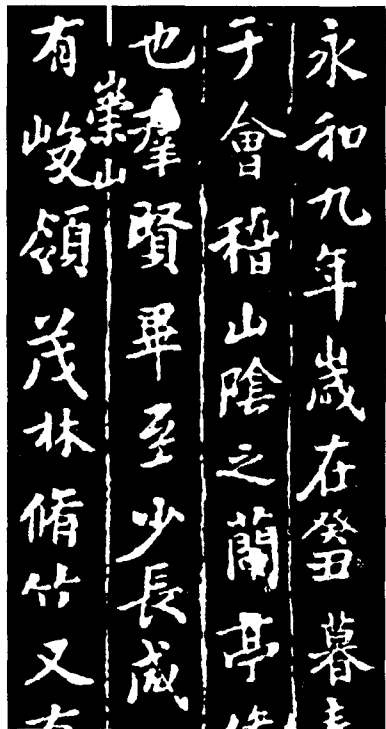 永和九年歲在癸丑暮
于會稽山陰之蘭亭
也羣賢畢至少長咸
有崇山峻領茂林脩竹又有